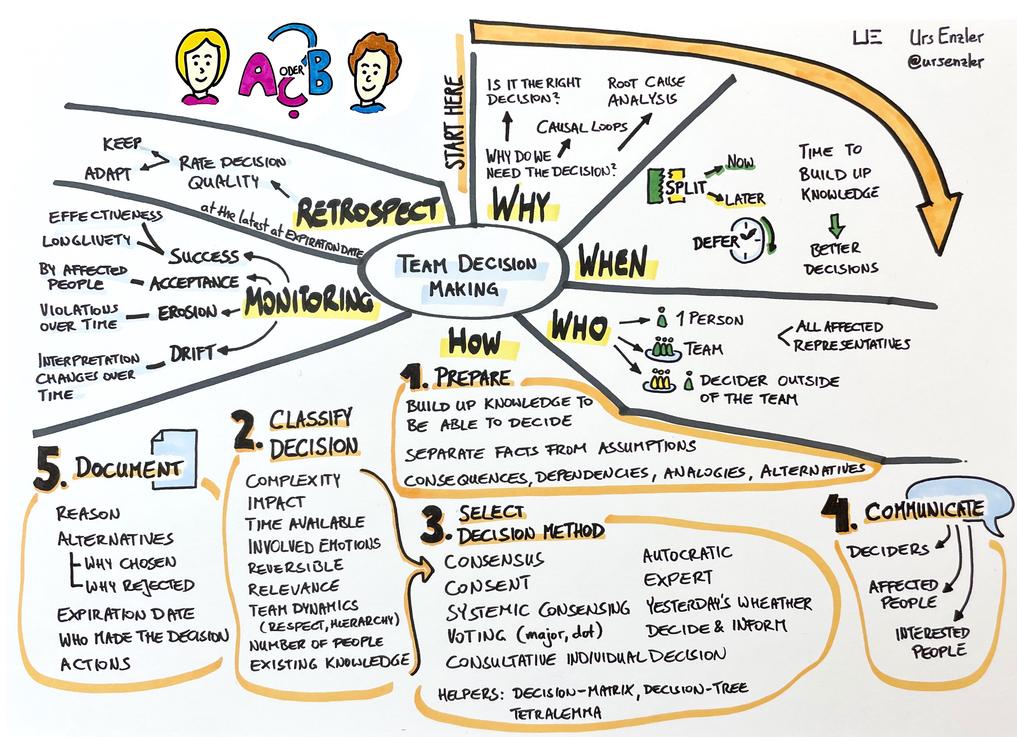 A ODER B
Ç
UE Urs Enzler
@ursenzler
START HERE
TEAM DECISION
MAKING
WHY
IS IT THE RIGHT
DECISION?
ROOT CAUSE
ANALYSIS
CAUSAL LOOPS
WHY DO WE
NEED THE DECISION?
WHEN
SPLIT
NOW
LATER
DEFER
TIME TO
BUILD UP
KNOWLEDGE
BETTER
DECISIONS
WHO
1 PERSON
TEAM
DECIDER OUTSIDE
OF THE TEAM
ALL AFFECTED
REPRESENTATIVES
HOW
1. PREPARE
BUILD UP KNOWLEDGE TO
BE ABLE TO DECIDE
SEPARATE FACTS FROM ASSUMPTIONS
CONSEQUENCES, DEPENDENCIES, ANALOGIES, ALTERNATIVES
2. CLASSIFY
DECISION
COMPLEXITY
IMPACT
TIME AVAILABLE
INVOLVED EMOTIONS
REVERSIBLE
RELEVANCE
TEAM DYNAMICS
(RESPECT, HIERARCHY)
NUMBER OF PEOPLE
EXISTING KNOWLEDGE
3. SELECT
DECISION METHOD
CONSENSUS
CONSENT
SYSTEMIC CONSENSING
VOTING (major, dot)
CONSULTATIVE INDIVIDUAL DECISION
AUTOCRATIC
EXPERT
YESTERDAY'S WHEATHER
DECIDE & INFORM
HELPERS: DECISION-MATRIX, DECISION-TREE
TETRALEMMA
4. COMMUNICATE
DECIDERS
AFFECTED
PEOPLE
INTERESTED
PEOPLE
5. DOCUMENT
REASON
ALTERNATIVES
WHY CHOSEN
WHY REJECTED
EXPIRATION DATE
WHO MADE THE DECISION
ACTIONS
MONITORING
SUCCESS
EFFECTIVENESS
LONGLIVETY
ACCEPTANCE
BY AFFECTED
PEOPLE
EROSION
VIOLATIONS
OVER TIME
DRIFT
INTERPRETATION
CHANGES OVER
TIME
RETROSPECT
at the latest at EXPIRATION DATE
RATE DECISION
QUALITY
KEEP
ADAPT